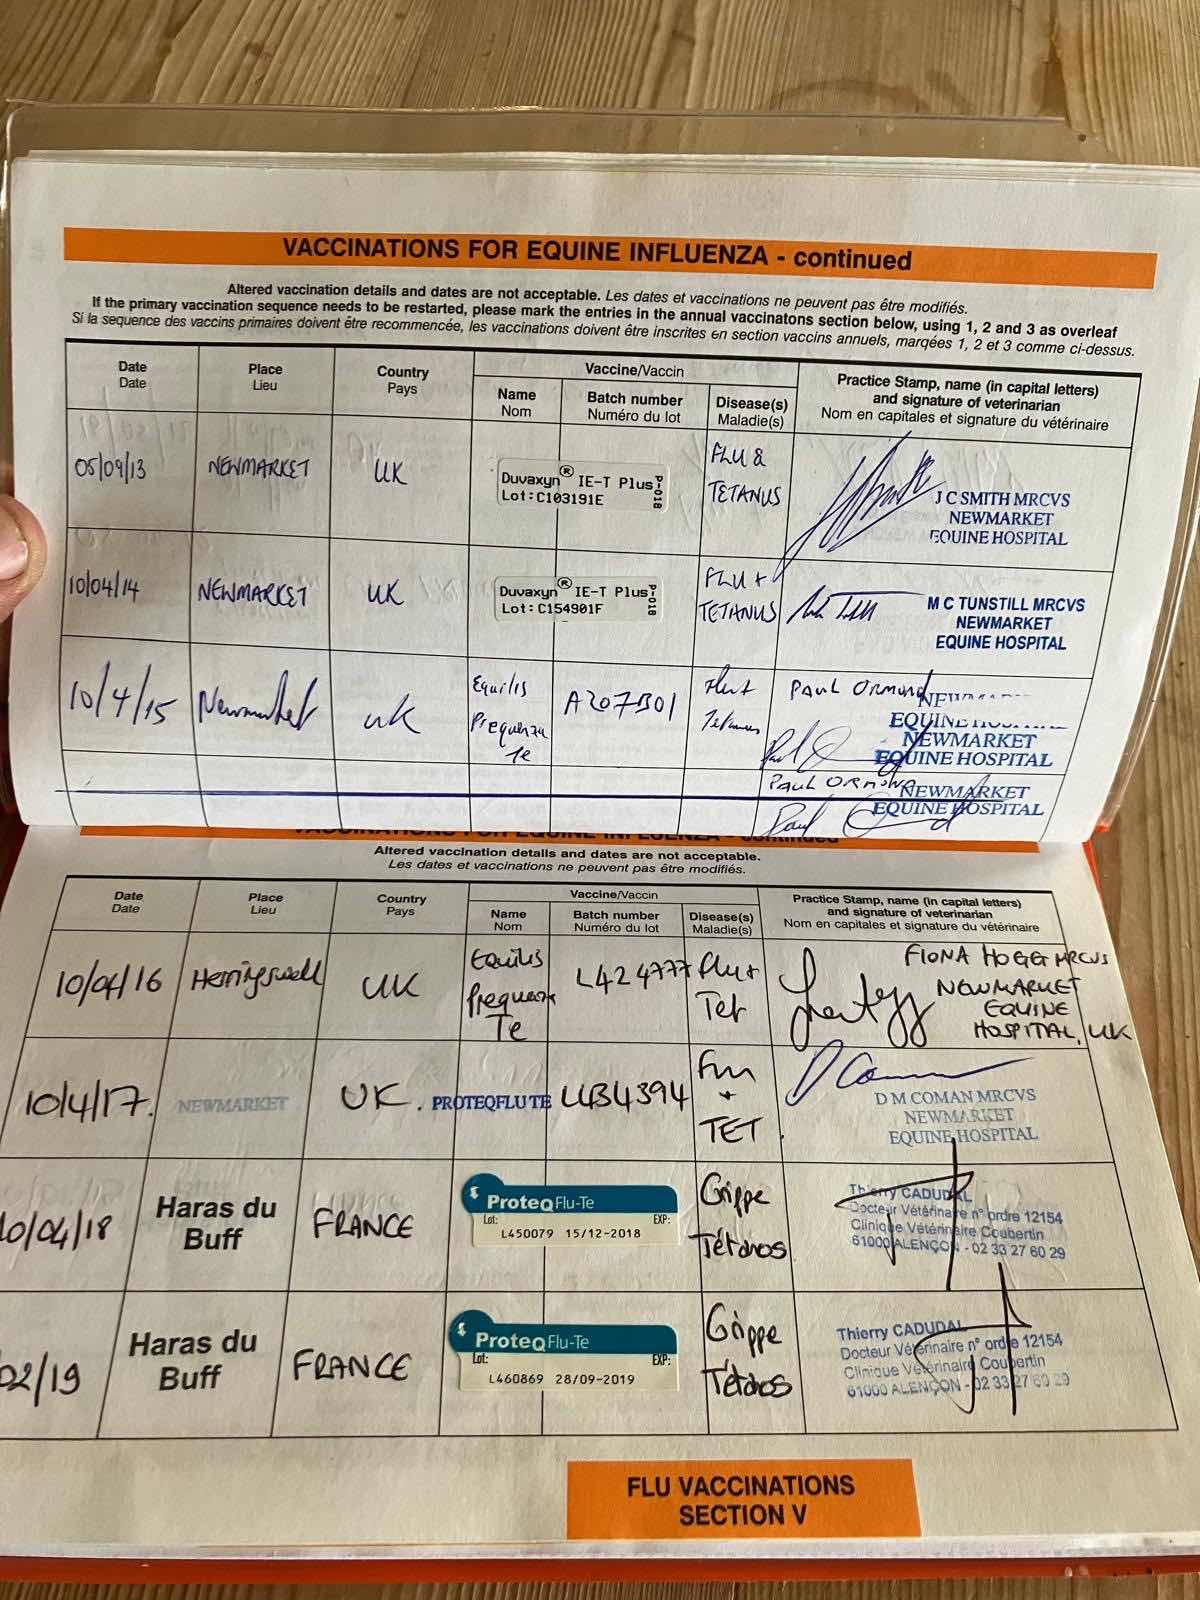 VACCINATIONS FOR EQUINE INFLUENZA - continued
Altered vaccination details and dates are not acceptable. Les dates et vaccinations ne peuvent pas être modifiés.
If the primary vaccination sequence needs to be restarted, please mark the entries in the annual vaccinatons section below, using 1, 2 and 3 as overleaf
Si la sequence des vaccins primaires doivent être recommencée, les vaccinations doivent être inscrites en section vaccins annuels, marqées 1, 2 et 3 comme ci-dessus.
Date
Date
Place
Lieu
Country
Pays
Vaccine/Vaccin
Name
Nom
Batch number
Numéro du lot
Disease(s)
Maladie(s)
Practice Stamp, name (in capital letters)
and signature of veterinarian
Nom en capitales et signature du vétérinaire
05/09/13
NEWMARKET
UK
Duvaxyn® IE-T Plus
Lot:C103191E
P-018
FLU &
TETANUS
J C SMITH MRCVS
NEWMARKET
EQUINE HOSPITAL
10/04/14
NEWMARKET
UK
Duvaxyn® IE-T Plus
Lot:C154901F
P-018
FLU +
TETANUS
M C TUNSTILL MRCVS
NEWMARKET
EQUINE HOSPITAL
10/4/15
Newmarket
UK
Equilis
Prequenza
Te
A207B01
Flu+
Tetanus
PAUL ORMOND
NEWMA
EQUINE HOSPITAL
NEWMARKET
EQUINE HOSPITAL
PAUL ORMOND
NEWMARKET
EQUINE HOSPITAL
VACCINATIONS FOR EQUINE INFLUENZA - continued
Altered vaccination details and dates are not acceptable.
Les dates et vaccinations ne peuvent pas être modifiés.
Date
Date
Place
Lieu
Country
Pays
Vaccine/Vaccin
Name
Nom
Batch number
Numéro du lot
Disease(s)
Maladie(s)
Practice Stamp, name (in capital letters)
and signature of veterinarian
Nom en capitales et signature du vétérinaire
10/04/16
Herringswell
UK
Equilis
Prequenza
Te
L424777
Flu+
Tet
FIONA HOGG MRCVS
NEWMARKET
EQUINE
HOSPITAL, UK
10/4/17.
NEWMARKET
UK.
PROTEQFLUTE
L434394
Flu
+
TET
D M COMAN MRCVS
NEWMARKET
EQUINE HOSPITAL
10/04/18
Haras du
Buff
FRANCE
ProteqFlu-Te
Lot:
EXP:
L450079 15/12-2018
Grippe
Tétanos
Thierry CADUDAL
Docteur Vétérinaire n° ordre 12154
Clinique Vétérinaire Coubertin
61000 ALENÇON - 02 33 27 60 29
02/19
Haras du
Buff
FRANCE
ProteqFlu-Te
Lot:
EXP:
L460869 28/09-2019
Grippe
Tétanos
Thierry CADUDAL
Docteur Vétérinaire n° ordre 12154
Clinique Vétérinaire Coubertin
61000 ALENÇON - 02 33 27 60 29
FLU VACCINATIONS
SECTION V